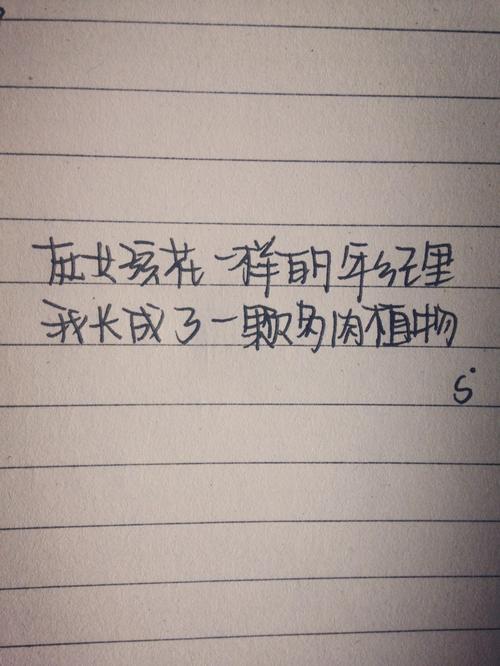 在女孩花一样的年经里
我长成了一颗多肉植物
S